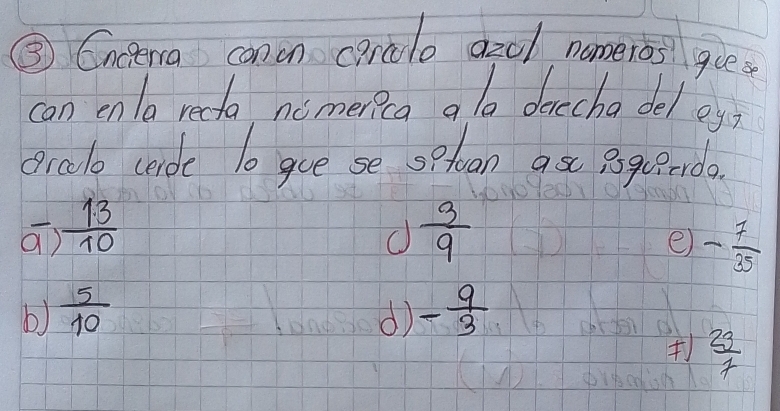 3 Encierra con un circulo azul nomeros que se
can en la recta nomerica a la derecha del
circulo verde lo que se situan a su isquierda.
a) 13/10 c) 3/9 e) - 7/35
b) 5/10 d) - 9/3
f) 23/7